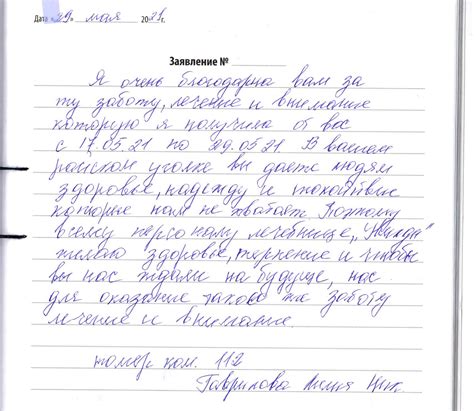 Дата «29» мая 2021г.
Заявление №
Я очень благодарна вам за
ту заботу, лечение и внимание
которую я получила от вас
с 17.05.21 по 29.05.21 В вашем
райском уголке вы даете людям
здоровье, надежду и спокойствие
которые нам не хватает. Поэтому
всему персоналу лечебнице
желаю здоровье, терпение и чтобы
вы нас ждали на будуще, нас
для оказание таково же заботу
лечение и внимание.
номер ком. 112
Гаврилова